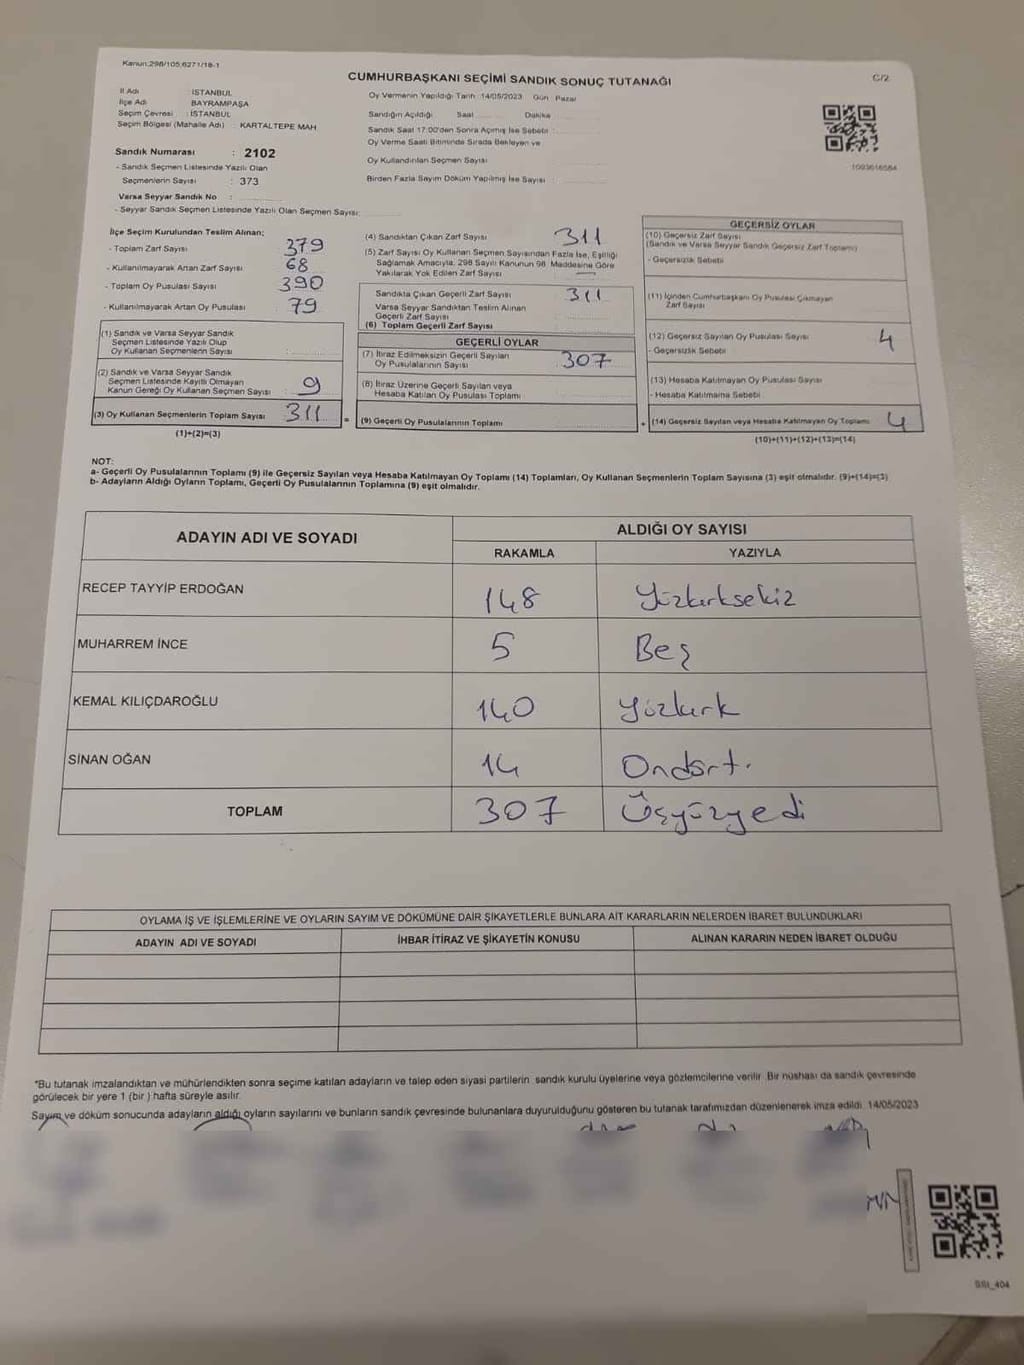 Kanun:298/105,6271/18-1
CUMHURBAŞKANI SEÇİMİ SANDIK SONUÇ TUTANAĞI
C/2
İl Adı : İSTANBUL
İlçe Adı : BAYRAMPAŞA
Seçim Çevresi : İSTANBUL
Seçim Bölgesi (Mahalle Adı) : KARTALTEPE MAH
Sandık Numarası : 2102
- Sandık Seçmen Listesinde Yazılı Olan
Seçmenlerin Sayısı : 373
Varsa Seyyar Sandık No :
- Seyyar Sandık Seçmen Listesinde Yazılı Olan Seçmen Sayısı:
Oy Vermenin Yapıldığı Tarih :14/05/2023 Gün : Pazar
Sandığın Açıldığı Saat Dakika
Sandık Saat 17:00'den Sonra Açılmış İse Sebebi :
Oy Verme Saati Bitiminde Sırada Bekleyen ve
Oy Kullandırılan Seçmen Sayısı
Birden Fazla Sayım Döküm Yapılmış İse Sayısı :
1093616584
İlçe Seçim Kurulundan Teslim Alınan;
- Toplam Zarf Sayısı 379
- Kullanılmayarak Artan Zarf Sayısı 68
- Toplam Oy Pusulası Sayısı 390
- Kullanılmayarak Artan Oy Pusulası 79
(1) Sandık ve Varsa Seyyar Sandık
Seçmen Listesinde Yazılı Olup
Oy Kullanan Seçmenlerin Sayısı
(2) Sandık ve Varsa Seyyar Sandık
Seçmen Listesinde Kayıtlı Olmayan
Kanun Gereği Oy Kullanan Seçmen Sayısı 9
(3) Oy Kullanan Seçmenlerin Toplam Sayısı 311 =
(1)+(2)=(3)
(4) Sandıktan Çıkan Zarf Sayısı 311
(5) Zarf Sayısı Oy Kullanan Seçmen Sayısından Fazla İse, Eşitliği
Sağlamak Amacıyla, 298 Sayılı Kanunun 98. Maddesine Göre
Yakılarak Yok Edilen Zarf Sayısı —
Sandıkta Çıkan Geçerli Zarf Sayısı 311
Varsa Seyyar Sandıktan Teslim Alınan
Geçerli Zarf Sayısı
(6) Toplam Geçerli Zarf Sayısı
GEÇERLİ OYLAR
(7) İtiraz Edilmeksizin Geçerli Sayılan
Oy Pusulalarının Sayısı 307
(8) İtiraz Üzerine Geçerli Sayılan veya
Hesaba Katılan Oy Pusulası Toplamı
(9) Geçerli Oy Pusulalarının Toplamı +
GEÇERSİZ OYLAR
(10) Geçersiz Zarf Sayısı
(Sandık ve Varsa Seyyar Sandık Geçersiz Zarf Toplamı)
- Geçersizlik Sebebi
(11) İçinden Cumhurbaşkanı Oy Pusulası Çıkmayan
Zarf Sayısı
(12) Geçersiz Sayılan Oy Pusulası Sayısı 4
- Geçersizlik Sebebi
(13) Hesaba Katılmayan Oy Pusulası Sayısı
- Hesaba Katılmama Sebebi
(14) Geçersiz Sayılan veya Hesaba Katılmayan Oy Toplamı 4
(10)+(11)+(12)+(13)=(14)
NOT:
a- Geçerli Oy Pusulalarının Toplamı (9) ile Geçersiz Sayılan veya Hesaba Katılmayan Oy Toplamı (14) Toplamları, Oy Kullanan Seçmenlerin Toplam Sayısına (3) eşit olmalıdır. (9)+(14)=(3)
b- Adayların Aldığı Oyların Toplamı, Geçerli Oy Pusulalarının Toplamına (9) eşit olmalıdır.
ADAYIN ADI VE SOYADI
ALDIĞI OY SAYISI
RAKAMLA YAZIYLA
RECEP TAYYİP ERDOĞAN 148 Yüzkırksekiz
MUHARREM İNCE 5 Beş
KEMAL KILIÇDAROĞLU 140 Yüzkırk
SİNAN OĞAN 14 Ondört.
TOPLAM 307 Üçyüzyedi
OYLAMA İŞ VE İŞLEMLERİNE VE OYLARIN SAYIM VE DÖKÜMÜNE DAİR ŞİKAYETLERLE BUNLARA AİT KARARLARIN NELERDEN İBARET BULUNDUKLARI
ADAYIN ADI VE SOYADI İHBAR İTİRAZ VE ŞİKAYETİN KONUSU ALINAN KARARIN NEDEN İBARET OLDUĞU
*Bu tutanak imzalandıktan ve mühürlendikten sonra seçime katılan adayların ve talep eden siyasi partilerin sandık kurulu üyelerine veya gözlemcilerine verilir. Bir nüshası da sandık çevresinde
görülecek bir yere 1 (bir ) hafta süreyle asılır.
Sayım ve döküm sonucunda adayların aldığı oyların sayılarını ve bunların sandık çevresinde bulunanlara duyurulduğunu gösteren bu tutanak tarafımızdan düzenlenerek imza edildi. 14/05/2023
SSI_404